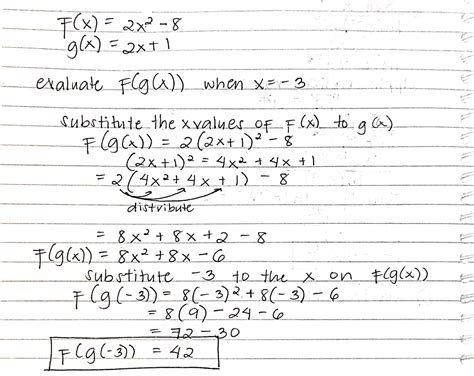 F(x) = 2x² - 8
g(x) = 2x + 1
evaluate F(g(x)) when x = -3
substitute the x values of F(x) to g(x)
F(g(x)) = 2(2x+1)² - 8
(2x+1)² = 4x² + 4x + 1
= 2(4x² + 4x + 1) - 8
distribute
= 8x² + 8x + 2 - 8
F(g(x)) = 8x² + 8x - 6
substitute -3 to the x on F(g(x))
F(g(-3)) = 8(-3)² + 8(-3) - 6
= 8(9) - 24 - 6
= 72 - 30
F(g(-3)) = 42